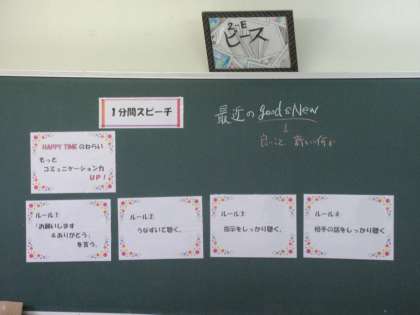 2-E
ピース
1分間スピーチ
最近のgood&New
↓
良いこと 新しい何か
HAPPY TIMEのねらい
もっと
コミュニケーション力
UP!
ルール①
「お願いします
&ありがとう」
を言う。
ルール②
うなずいて聴く。
ルール③
指示をしっかり聴く。
ルール④
相手の話をしっかり聴く